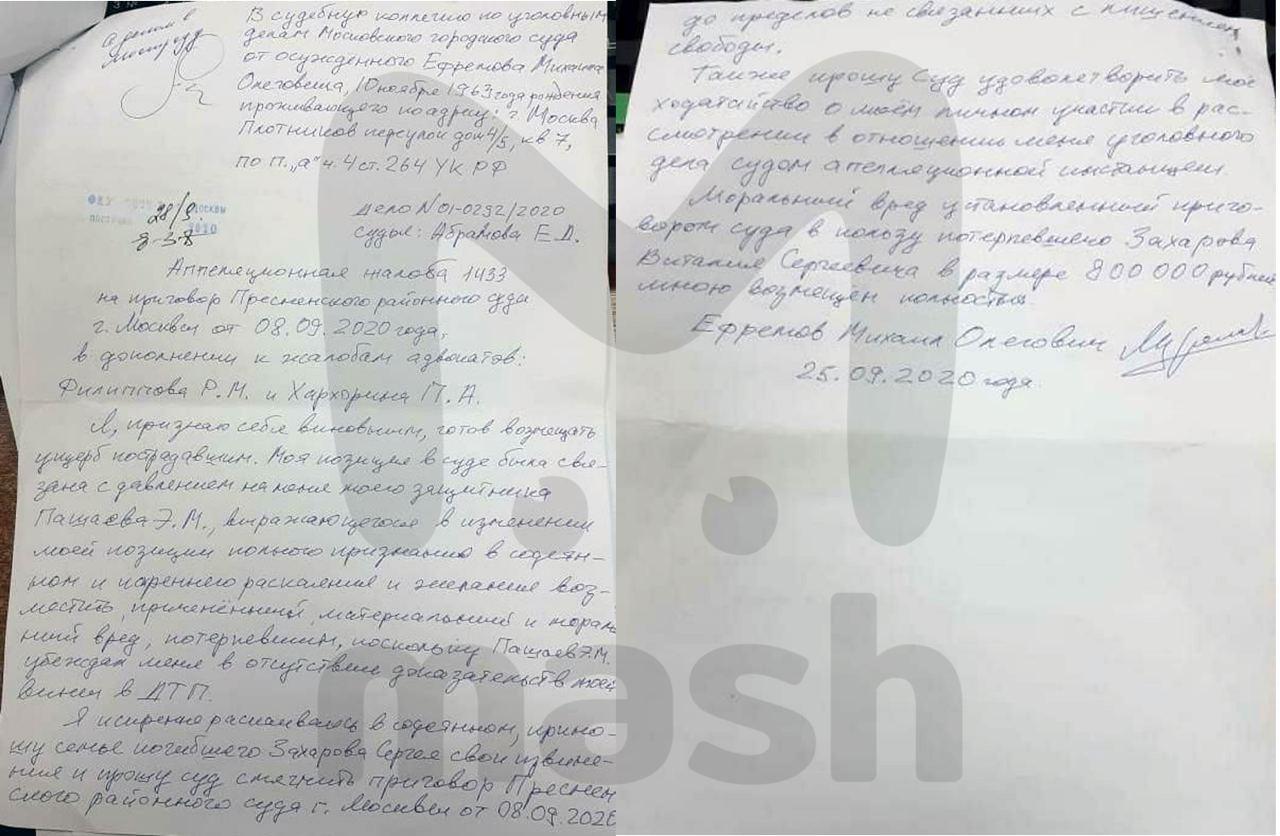 В судебную коллегию по уголовным
делам Московского городского суда
от осужденного Ефремова Михаила
Олеговича, 10 ноября 1963 года рождения
проживающего по адресу: г. Москва
Плотников переулок дом 4/5, кв 7,
по п. „а" ч. 4 ст. 264 УК РФ
ФКУ МОСКВЫ
28/9 2020
З-3-8
Дело N 01-0292/2020
судья: Абрамова Е.Д.
Аппеляционная жалоба 1433
на приговор Пресненского районного суда
г. Москвы от 08.09.2020 года,
в дополнении к жалобам адвокатов:
Филиппова Р.М. и Хархорина П.А.
Я, признаю себя виновным, готов возмещать
ущерб пострадавшим. Моя позиция в суде была свя-
зана с давлением на меня моего защитника
Пашаева Э.М., выражающегося в изменении
моей позиции полного признанию в содеян-
ном и искреннего раскаяния и желания воз-
местить, применённый, материальный и мораль
ный вред, потерпевшим, поскольку Пашаев Э.М.
убеждал меня в отсутствии доказательств моей
вины в ДТП.
Я искренне раскаиваюсь в содеянном, прино-
шу семье погибшего Захарова Сергея свои извине-
ния и прошу суд смягчить приговор Преснен
ского районного суда г. Москвы от 08.09.2020
до пределов не связанных с лишением
свободы.
Также прошу Суд удовлетворить моё
ходатайство о моём личном участии в рас-
смотрении в отношении меня уголовного
дела судом апелляционной инстанции.
Моральный вред установленный приго-
вором суда в пользу потерпевшего Захарова
Виталия Сергеевича в размере 800 000 рублей
мною возмещен полностью.
Ефремов Михаил Олегович
25.09.2020 года.
mash